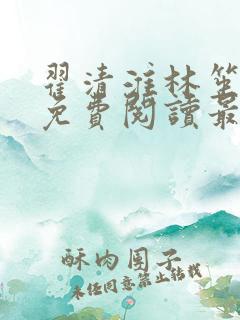 翟清淮林笙
免費閱讀最
酥肉团子
未经同意禁止转载